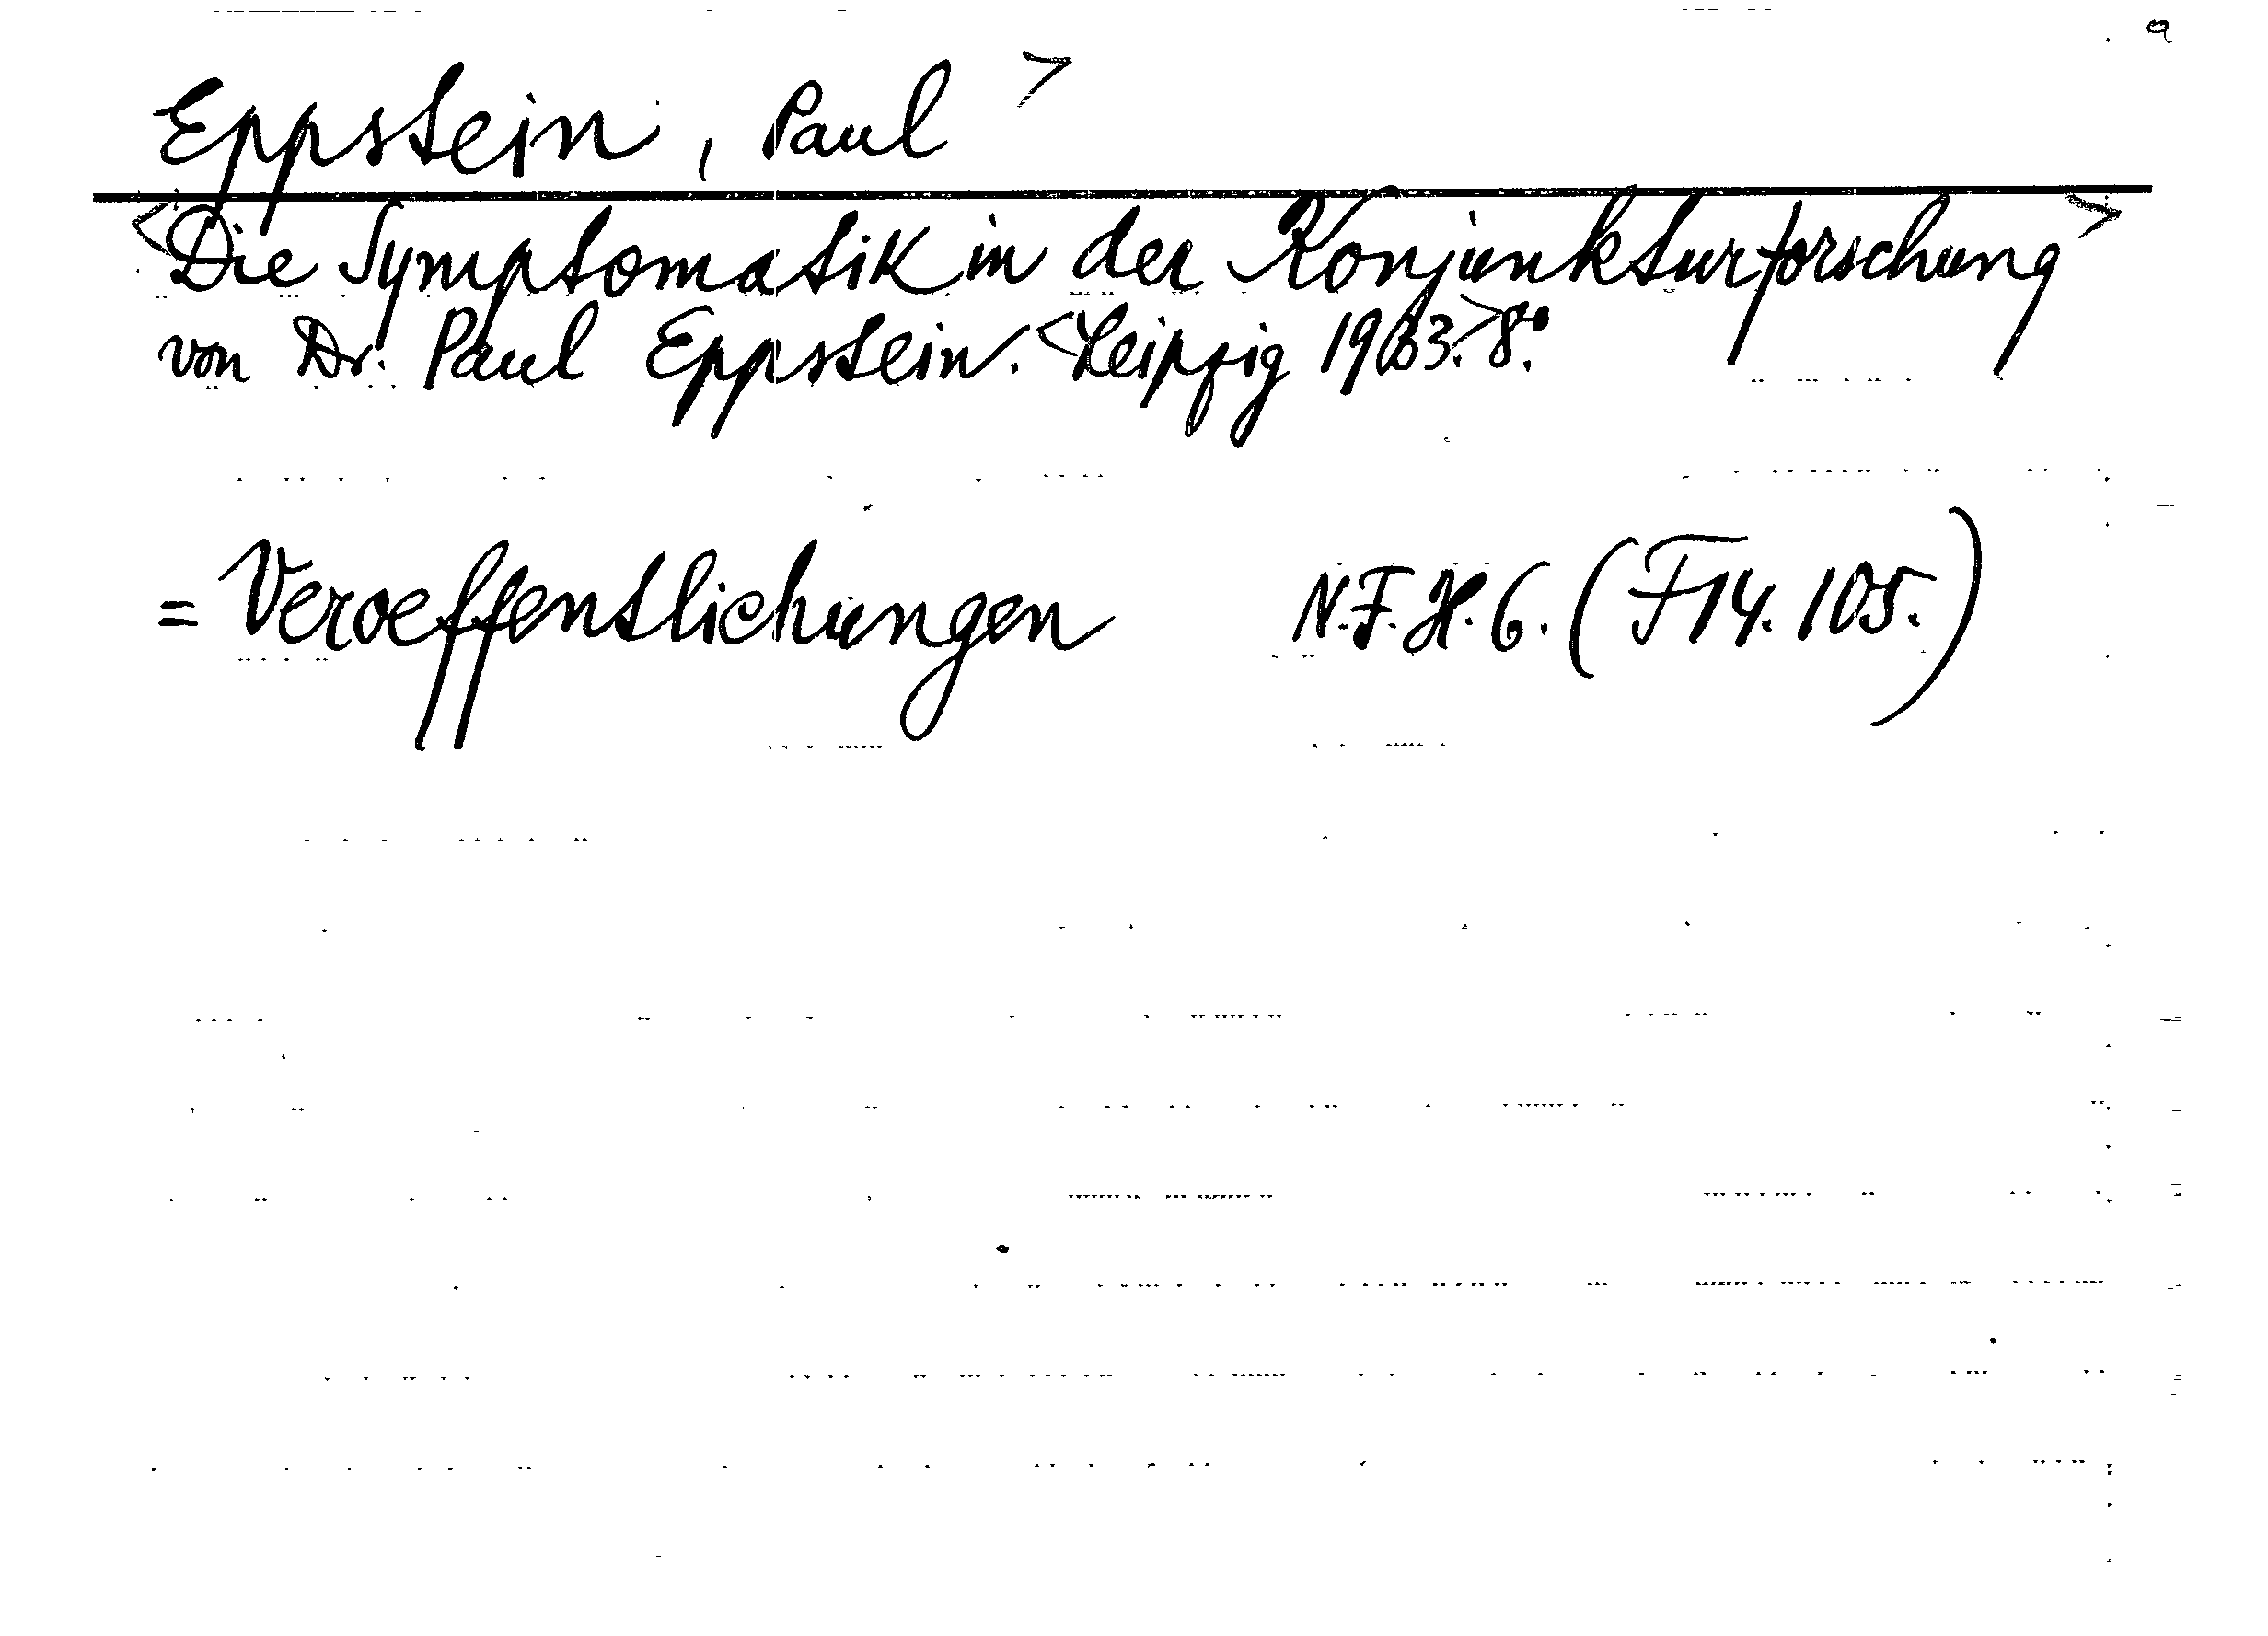 Eppstein, Paul >
<Die Symptomatik in der Konjunkturforschung>
von Dr. Paul Eppstein. <Leipzig 1933.> 8°.
= Veroeffentlichungen N.F. H. 6. (F14. 105.)